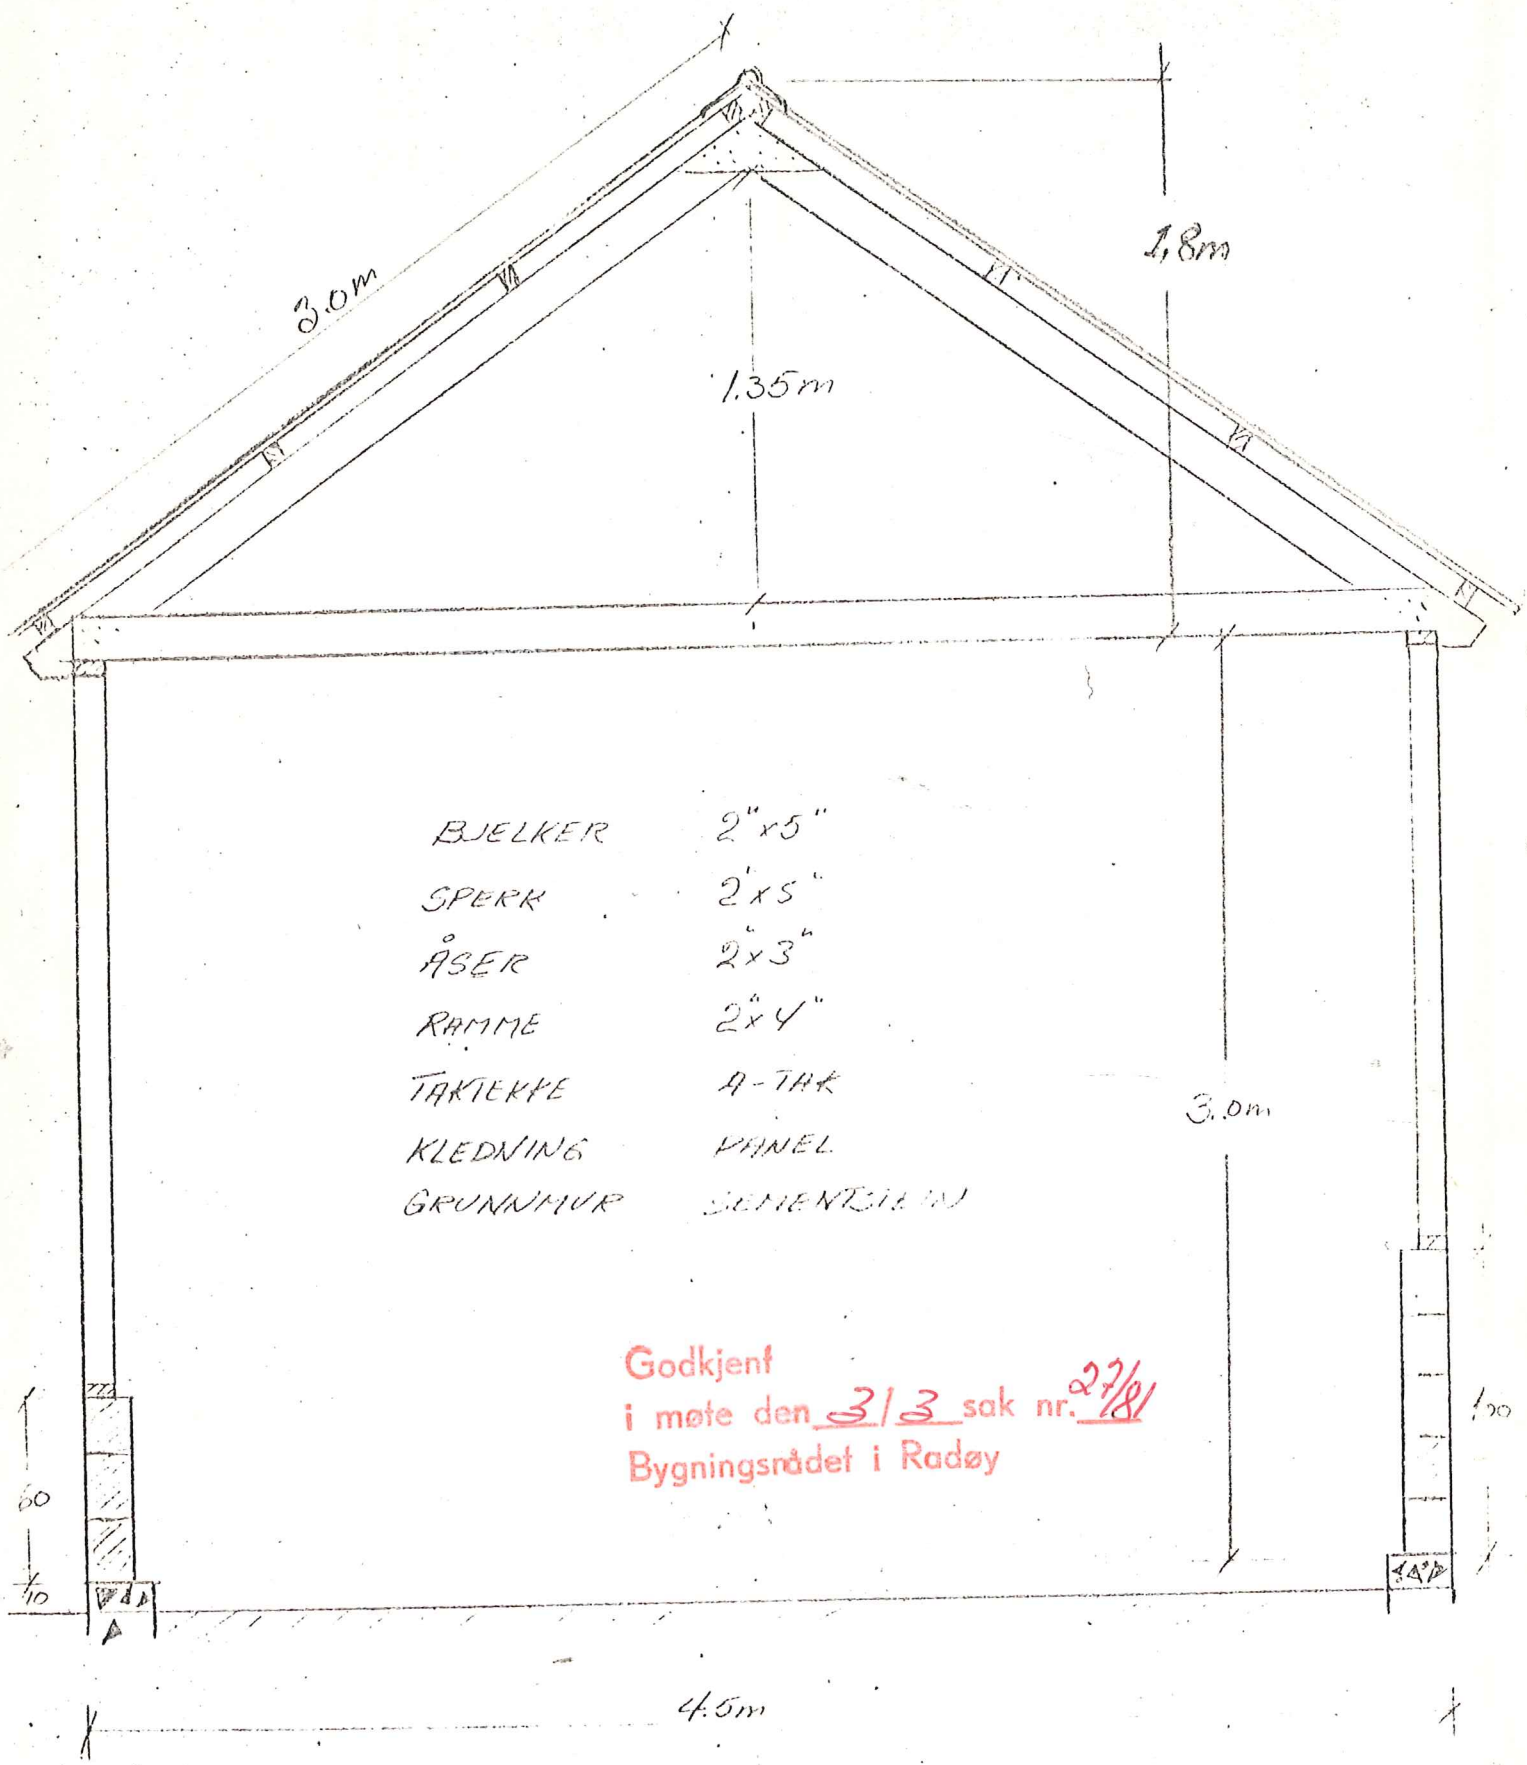 3.0m
1,8m
1.35m
BJELKER 2"x5"
SPERR 2"x5"
ÅSER 2"x3"
RAMME 2"x4"
TAKTEKKE A-TAK
KLEDNING PANEL
GRUNNMUR SEMENTSTEIN
3.0m
Godkjent
i møte den 3/3 sak nr. 27/81
Bygningsrådet i Radøy
100
60
10
4.5m